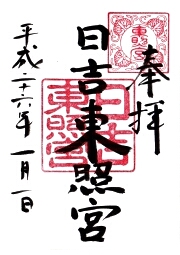 奉拝
日吉東照宮
平成二十六年一月一日
日吉
東照宮